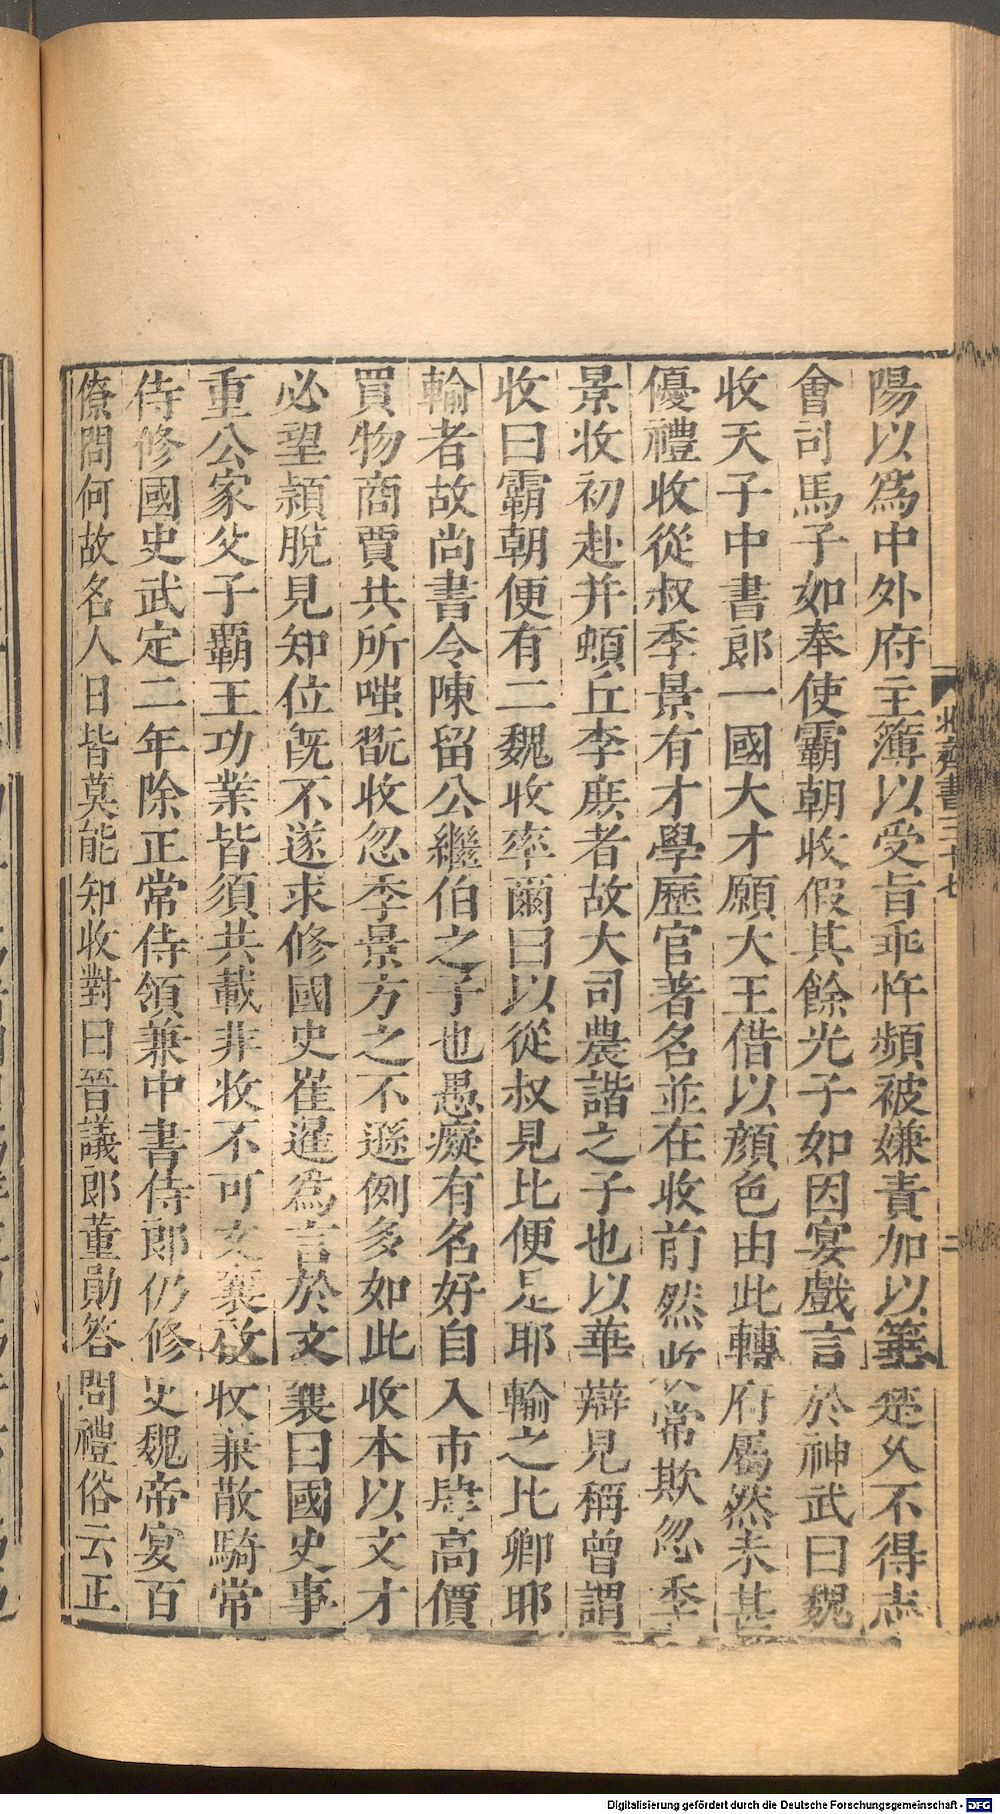 陽以爲中外府主簿以受旨乖忤頻被嫌責加以箠楚久不得志
會司馬子如奉使霸朝收假其餘光子如因宴戲言於神武曰魏
收天子中書郎一國大才願大王借以顏色由此轉府屬然未甚
優禮收從叔季景有才學歷官著名並在收前然收常欺忽季
景收初赴并頓丘李庶者故大司農諧之子也以華辯見稱曾謂
收曰霸朝便有二魏收率爾曰以從叔見比便是耶輸之比卿耶
輸者故尚書令陳留公繼伯之子也愚癡有名好自入市肆高價
買物商賈共所嗤翫收忽季景方之不遜例多如此收本以文才
必望穎脫見知位旣不遂求修國史崔暹爲言於文襄曰國史事
重公家父子霸王功業皆須共載非收不可文襄啟收兼散騎常
侍修國史武定二年除正常侍領兼中書侍郎仍修史魏帝宴百
僚問何故名人日皆莫能知收對曰晉議郎董勛答問禮俗云正
北齊書三十七
二
Digitalisierung gefördert durch die Deutsche Forschungsgemeinschaft - DFG